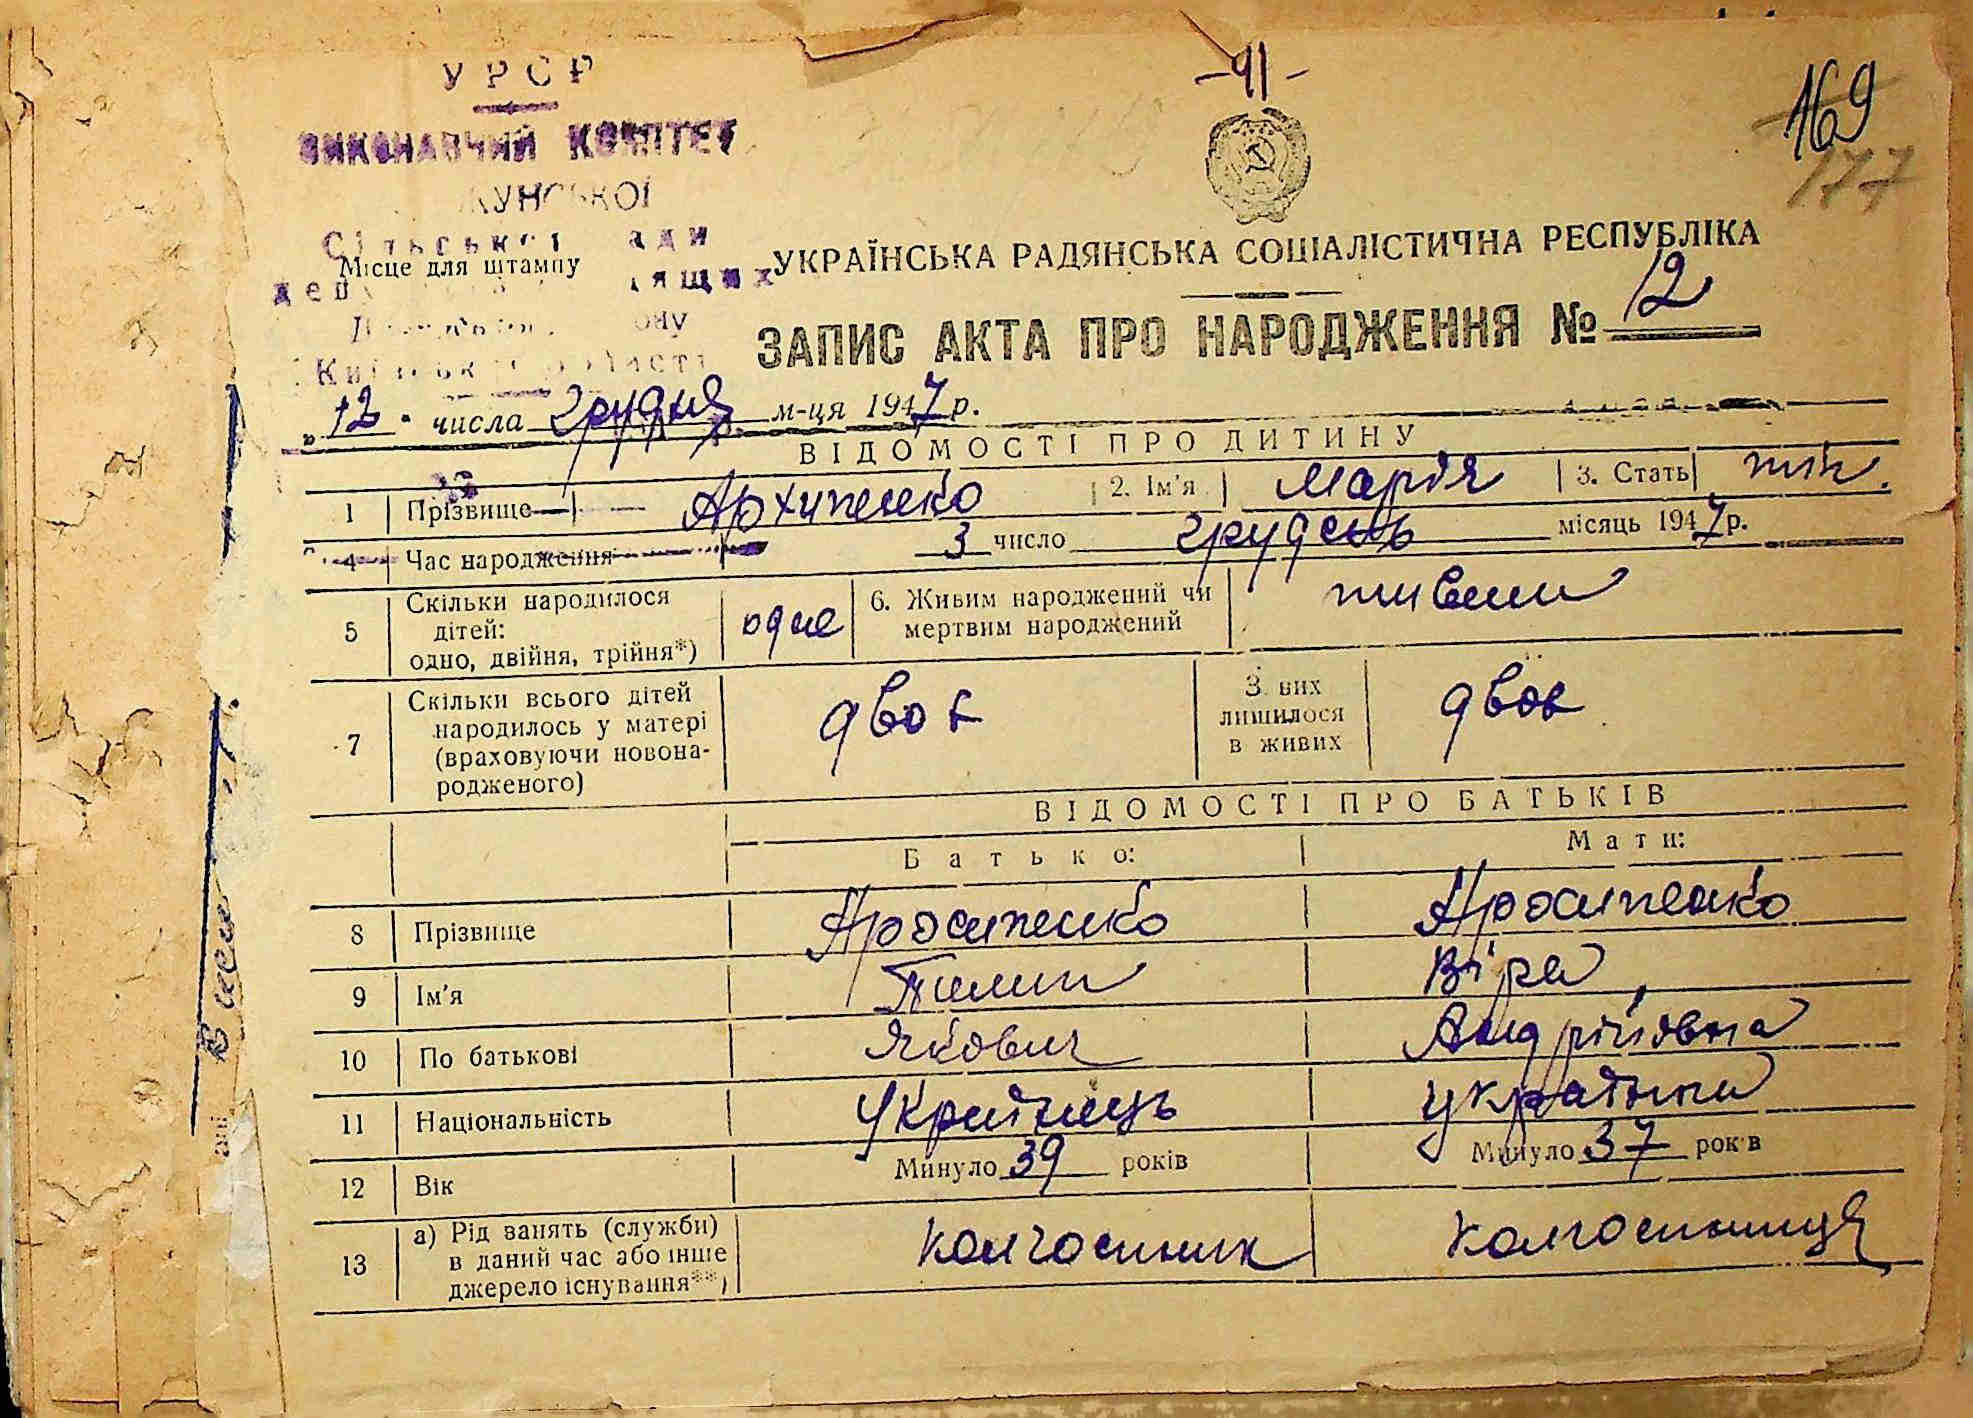 -41-
169
177
УРСР
ВИКОНАВЧИЙ КОМІТЕТ
Сільської ради
Місце для штампу
УКРАЇНСЬКА РАДЯНСЬКА СОЦІАЛІСТИЧНА РЕСПУБЛІКА
ЗАПИС АКТА ПРО НАРОДЖЕННЯ № 12
Київської області
„12" числа грудня м-ця 1947 р.
ВІДОМОСТІ ПРО ДИТИНУ
1 Прізвище Архипенко 2. Ім'я Марія 3. Стать жін.
4 Час народження 3 число грудень місяць 1947 р.
5 Скільки народилося дітей: одно, двійня, трійня*) одне 6. Живим народжений чи мертвим народжений живим
7 Скільки всього дітей народилось у матері (враховуючи новонародженого) двоє З них лишилося в живих двоє
ВІДОМОСТІ ПРО БАТЬКІВ
Батько: Мати:
8 Прізвище Архипенко Архипенко
9 Ім'я Пилип Віра
10 По батькові Якович Андріївна
11 Національність Українець українка
12 Вік Минуло 39 років Минуло 37 років
13 а) Рід занять (служби) в даний час або інше джерело існування**) колгоспник колгоспниця